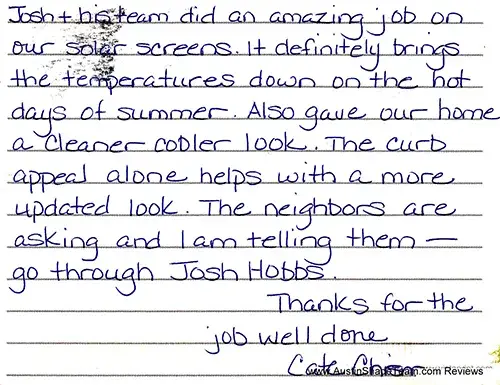 Josh + his team did an amazing job on
our solar screens. It definitely brings
the temperatures down on the hot
days of summer. Also gave our home
a cleaner cooler look. The curb
appeal alone helps with a more
updated look. The neighbors are
asking and I am telling them —
go through Josh Hobbs.
Thanks for the
job well done
Cate
www.AustinShadeTeam.com Reviews